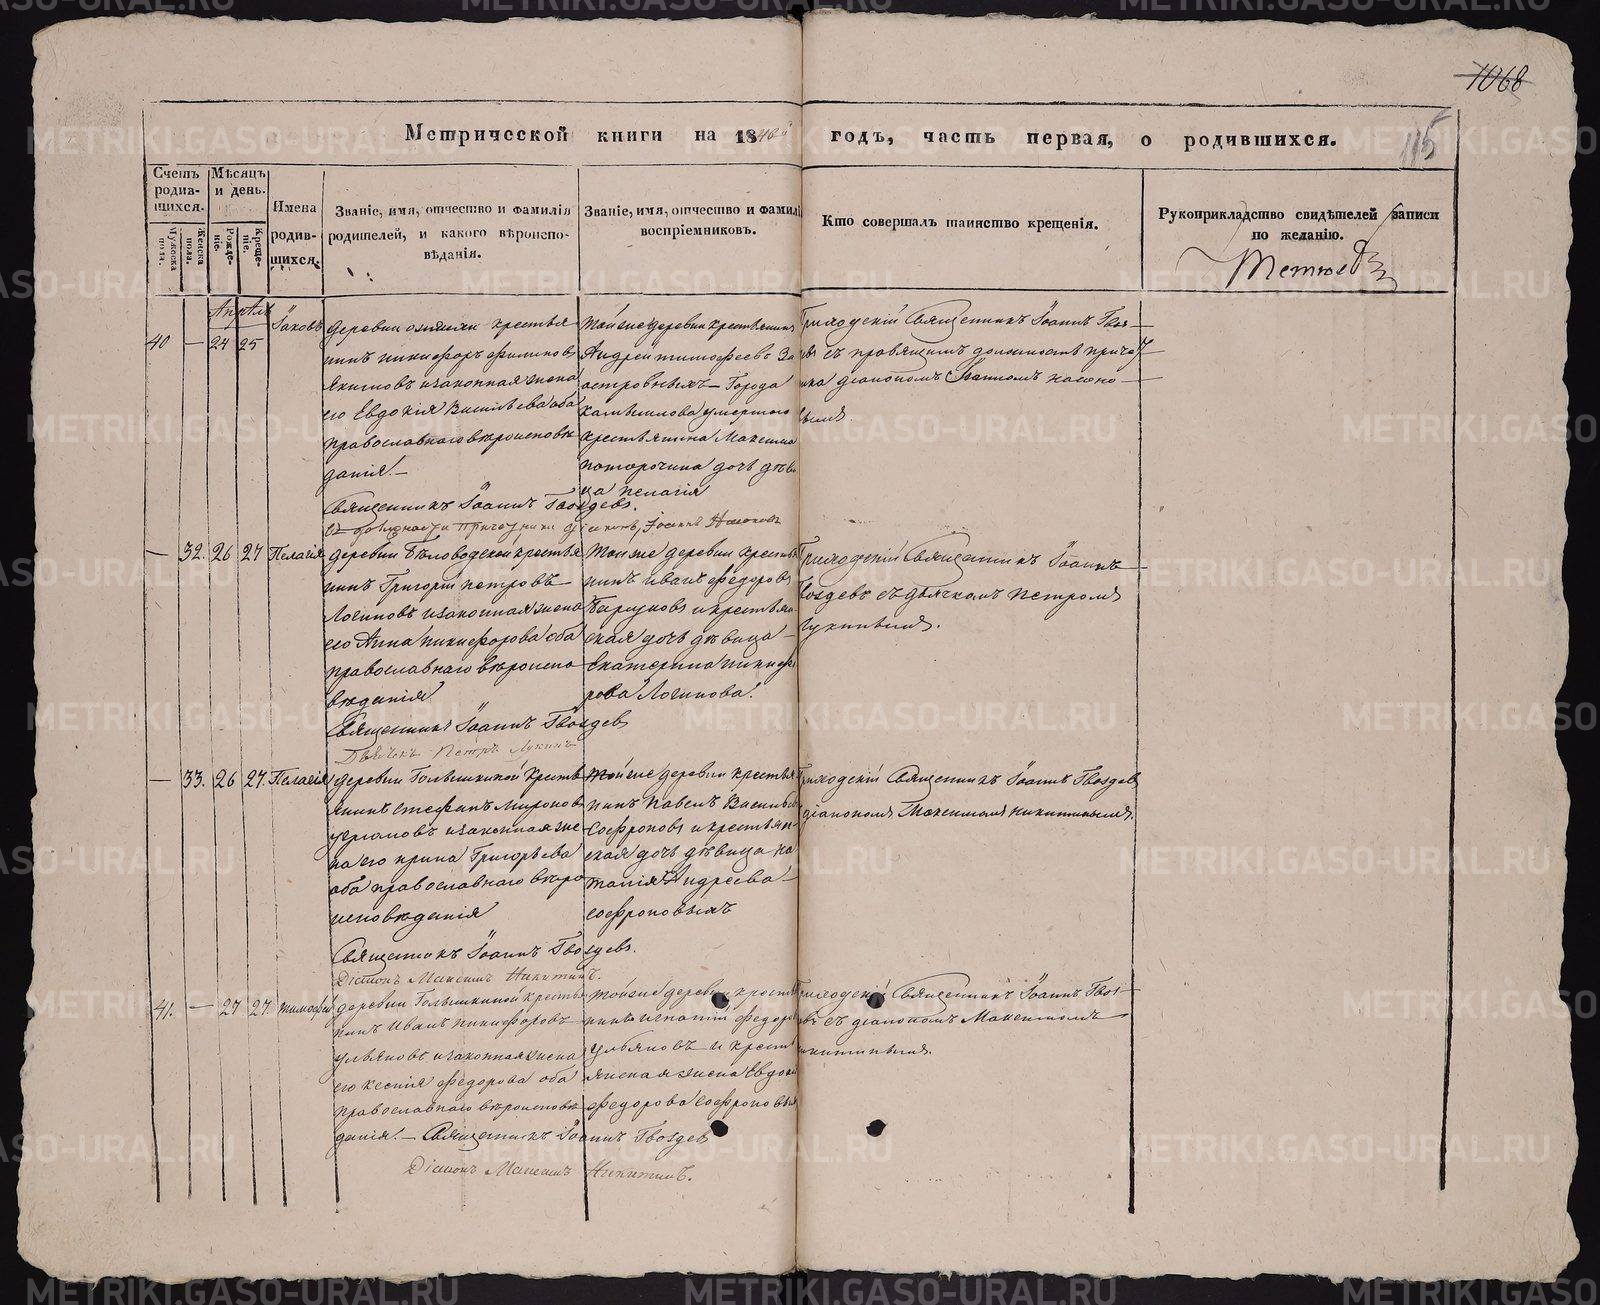 1068
115
Метрической книги на 1840й годъ, часть первая, о родившихся.
Счетъ родив-шихся.
Мужеска пола.
Женска пола.
Мѣсяцъ и день.
Рожде-ніе.
Креще-ніе.
Имена родив-шихся.
Званіе, имя, отчество и фамилія
родителей, и какого вѣроиспо-
вѣданія.
Званіе, имя, отчество и фамилі
воспріемниковъ.
Кто совершалъ таинство крещенія.
Рукоприкладство свидѣтелей записи
по желанію.
Апрѣль
40 — 24 25
Іаковъ
деревни крестья
нинъ никифоръ филиповъ
Якимовъ и законная жена
его Евдокія Васильева оба
православнаго вѣроисповѣ
данія. —
Священникъ Іоаннъ Гвоздевъ.
тойже деревни крестьянинъ
Андрей тимофеевъ За
островныхъ — Города
камышлова умершаго
крестьянина Максима
поторочина дочь дѣви
ца пелагія
Приходскій Священникъ Іоаннъ Гвоз—
съ правящимъ должность приче
ника діакономъ
— 32. 26 27
Пелагія
деревни Бѣловодской крестья
нинъ Григорій петровъ —
Логиновъ и законная жена
его Анна никифорова оба
православнаго вѣроиспо
вѣданія
Священникъ Іоаннъ Гвоздевъ
Дьячекъ Петръ Лукинъ
тойже деревни крестья
нинъ иванъ федоровъ
и крестьян
ская дочь дѣвица —
Екатерина никифо
рова Логинова.
Приходскій Священникъ Іоаннъ —
Гвоздевъ съ дьячкомъ петромъ
лукинымъ.
— 33. 26 27.
Пелагія
деревни Голышкиной крестья
нинъ стефанъ мироновъ
и законная же
на его ирина Григорьева
оба православнаго вѣро
исповѣданія
Священникъ Іоаннъ Гвоздевъ.
Діаконъ Максимъ Никитинъ.
тойже деревни крестья
нинъ павелъ Васильевъ
Софроновъ и крестьян
ская дочь дѣвица на
талія Андреева —
софроновыхъ
Приходскій Священникъ Іоаннъ Гвоздевъ
діакономъ Максимомъ никитинымъ.
41. — 27 27.
тимофей
деревни Голышкиной крестья
нинъ Иванъ никифоровъ
ульяновъ и законная жена
его ксенія федорова оба
православнаго вѣроисповѣ
данія. — Священникъ Іоаннъ Гвоздевъ
Діаконъ Максимъ Никитинъ.
тойже деревни крестья
нинъ игнатій федоровъ
ульяновъ и кресть
янская жена Евдокія
федорова софроновы
Приходскій Священникъ Іоаннъ Гвоз—
съ діакономъ Максимомъ
никитинымъ.
METRIKI.GASO-URAL.RU